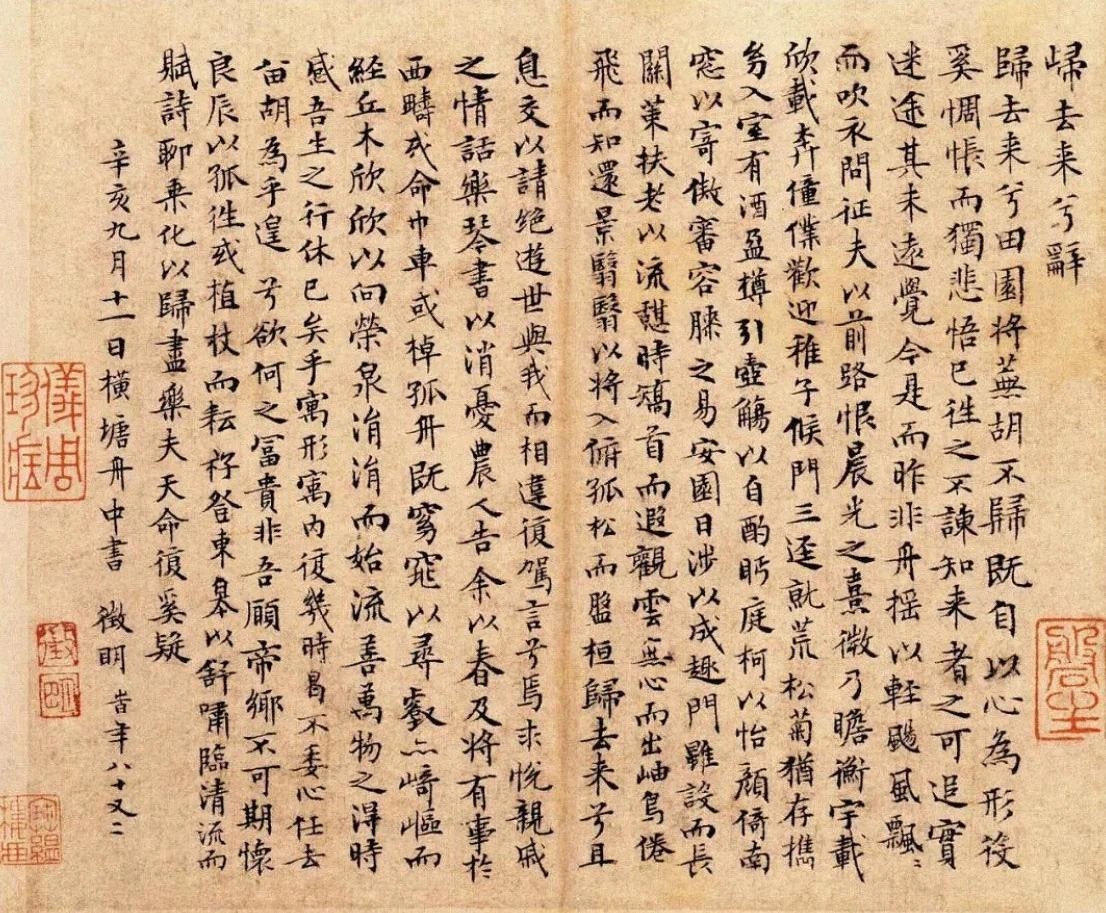 歸去来兮辭
歸去来兮田園将蕪胡不歸既自以心為形役
奚惆悵而獨悲悟已往之不諫知来者之可追實
迷途其未遠覺今是而昨非舟揺以輕颺風飄〻
而吹衣問征夫以前路恨晨光之熹微乃瞻衡宇載
欣載奔僮僕歡迎稚子候門三逕就荒松菊猶存携
㓜入室有酒盈樽引壺觴以自酌眄庭柯以怡顔倚南
窓以寄傲審容膝之易安園日涉以成趣門雖設而長
關策扶老以流憇時矯首而遐觀雲無心而出岫鳥倦
飛而知還景翳翳以将入俯孤松而盤桓歸去来兮且
息交以請絶遊世與我而相違復駕言兮焉求悅親戚
之情話樂琴書以消憂農人告余以春及将有事於
西疇或命巾車或棹孤舟既窈窕以尋壑亦崎嶇而
経丘木欣欣以向榮泉涓涓而始流善萬物之得時
感吾生之行休已矣乎寓形寓内復幾時曷不委心任去
留胡為乎遑兮欲何之冨貴非吾願帝鄉不可期懷
良辰以孤往或植杖而耘耔登東皋以舒嘯臨清流而
賦詩聊乗化以歸盡樂夫天命復奚疑
辛亥九月十一日横塘舟中書 徵明 峕年八十又二
儀周珍藏
徵
明